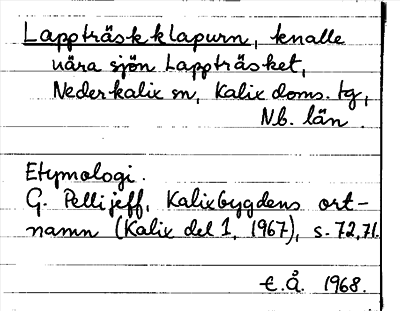 Lappträskklapurn, knalle
nära sjön Lappträsket,
Nederkalix sn, Kalix doms. tg,
Nb. län.
Etymologi.
G. Pellijeff, Kalixbygdens ort-
namn (Kalix del 1, 1967), s. 72,71.
E.Å. 1968.